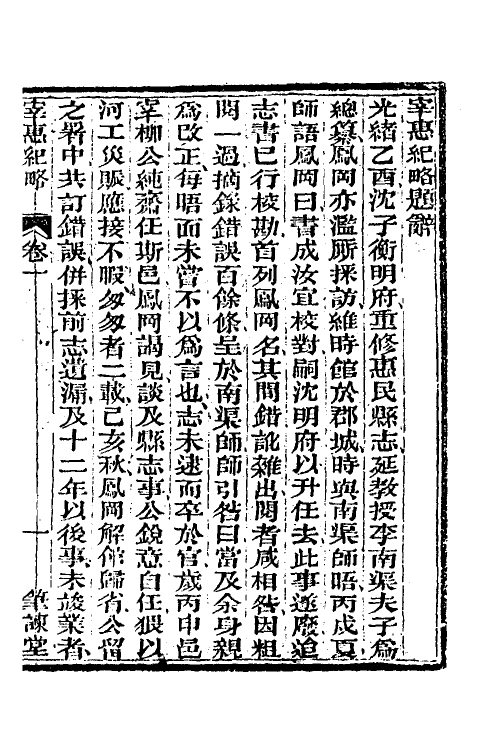 宰惠紀略題辭
光緒乙酉沈子衡明府重修惠民縣志延教授李南渠夫子爲
總纂鳳岡亦濫厠採訪維時館於郡城時與南渠師晤丙戌夏
師語鳳岡曰書成汝宜校對嗣沈明府以升任去此事遂廢迨
志書已行校勘首列鳳岡名其間錯訛雜出閱者咸相咎因粗
閱一過摘錄錯誤百餘條呈於南渠師師引咎曰當及余身親
爲改正每晤面未嘗不以爲言也志未逮而卒於官歲丙申邑
宰柳公純齋任斯邑鳳岡謁見談及縣志事公銳意自任狠以
河工災賑應接不暇匆匆者二載己亥秋鳳岡解館歸省公留
之署中共訂錯誤併採前志遺漏及十二年以後事未竣業者
宰惠紀略 卷一 一 筆諫堂